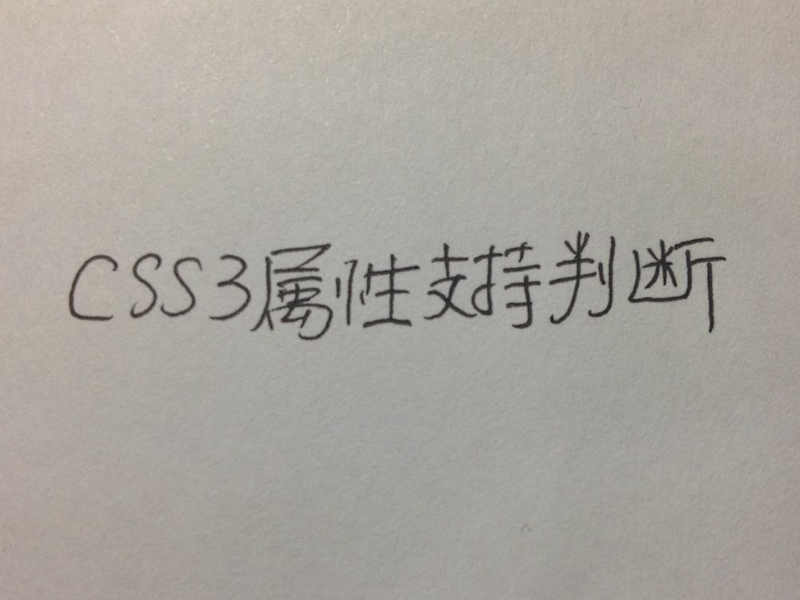 CSS3属性支持判断